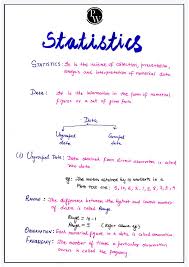 PW
Statistics
STATISTICS: It is the science of collection, presentation,
analysis and interpretation of numerical data
DATA: It is the information in the form of numerical
figures or a set of given facts
Data
Ungrouped Data
Grouped Data
(i) Ungrouped Data: Data obtained from direct observation is called
raw data
eg: The marks obtained by 10 students in a
RANGE: The difference between the highest and lowest number
of data is called Range.
Range = 10-1
Range = 9
OBSERVATION: Each numerical figure in a data is called observation
FREQUENCY: The number of times a particular observation
occurs is called its frequency